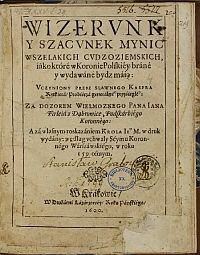 WIZERVNK
Y SZACVNEK MYNIC
WSZELAKICH CVDZOZIEMSKICH,
iáko które w Koronie Polskiéy bráné
y wydáwáné bydź máią:
VCZYNIONY PRZEZ SLAWNEGO KASPRA
ZA DOZOREM WIELMOZNEGO PANA IANA
Firleiá z Dąbrowice, Podskárbiégo
Koronnégo:
A zá własnym roskazániém KROLA Iº M. w druk
wydány: według vchwały Séymu Koron-
négo Wárszáwskiego, w roku
Stanisław
W Krákowie,
W Drukárni Łázárzowéy: Roku Páńskiégo,
1600.